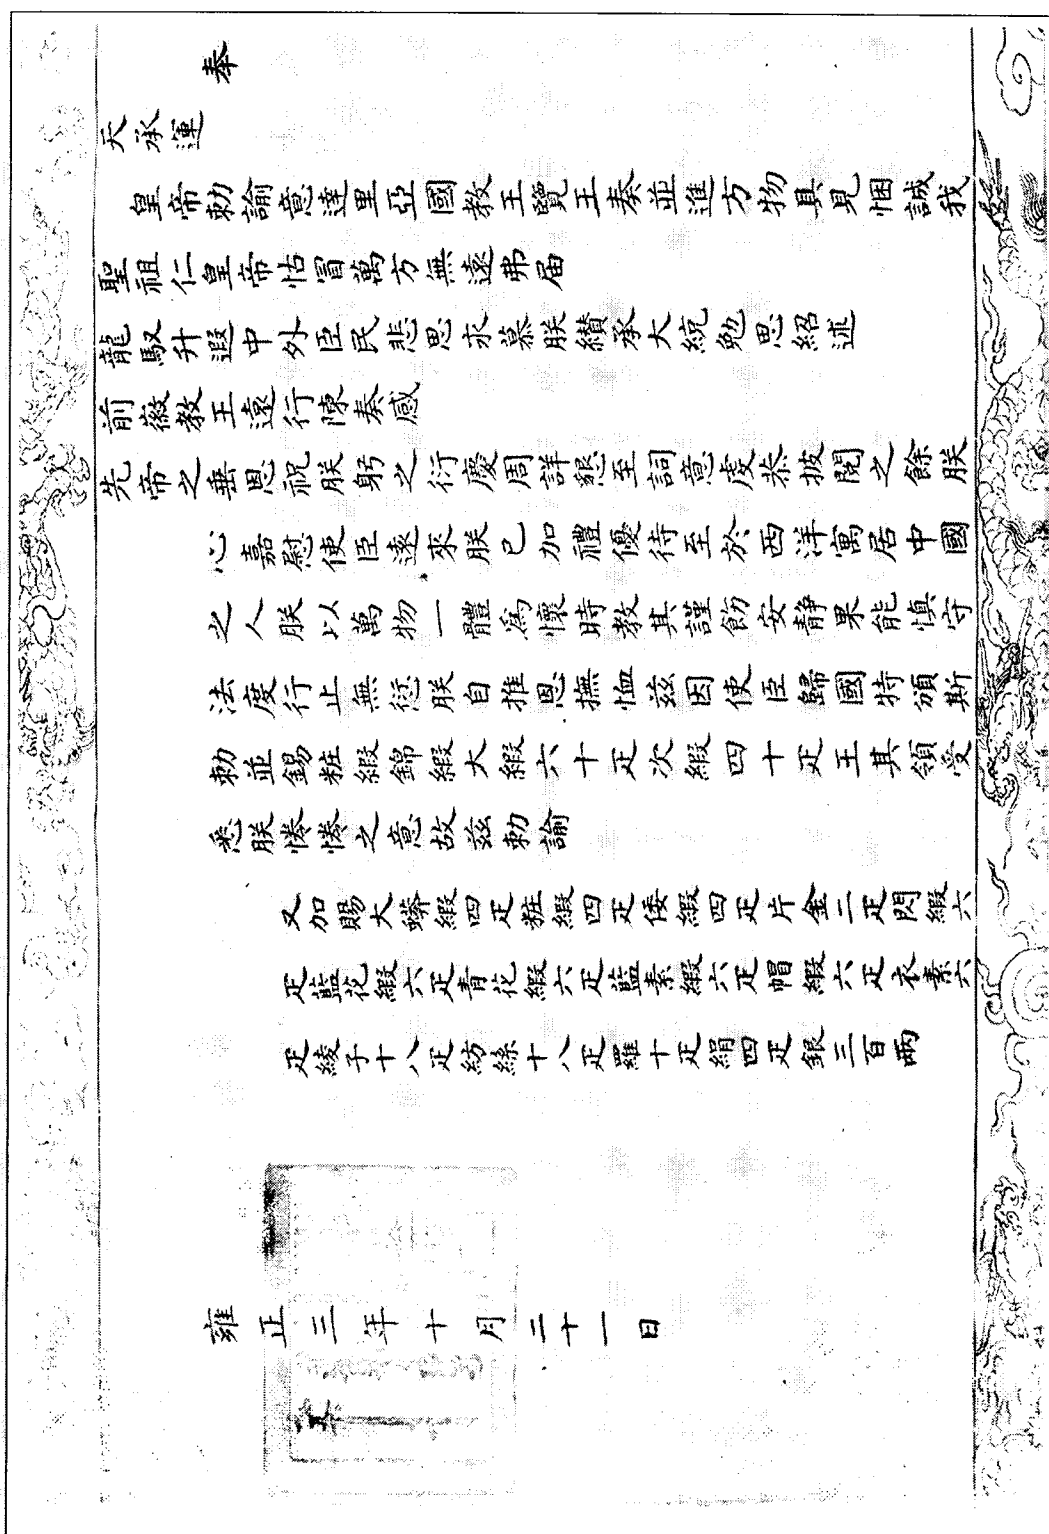 奉
天承運
皇帝勅諭意達里亞國教王覽王奏並進方物具見悃誠我
聖祖仁皇帝怙冒萬方無遠弗届
龍馭升遐中外臣民悲思永慕朕纘承大統勉思紹述
前徽教王遠行陳奏感
先帝之垂恩祝朕躬之衍慶周詳懇至詞意虔恭披閱之餘朕
心嘉慰使臣遠來朕已加禮優待至於西洋寓居中國
之人朕以萬物一體爲懷時教其謹飭安靜果能慎守
法度行止無愆朕自推恩撫恤兹因使臣歸國特頒斯
勅並錫粧緞錦緞大緞六十疋次緞四十疋王其領受
悉朕惓惓之意故兹勅諭
又加賜大蟒緞四疋粧緞四疋倭緞四疋片金二疋閃緞六
疋藍花緞六疋青花緞六疋藍素緞六疋帽緞六疋衣素六
疋綾子十八疋紡絲十八疋羅十疋絹四疋銀三百兩
雍正三年十月二十一日